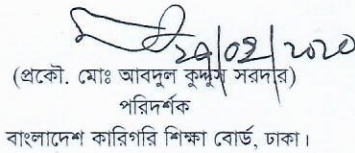 ২৭/০২/২০২০
(প্রকৌ. মোঃ আবদুল কুদ্দুস সরদার)
পরিদর্শক
বাংলাদেশ কারিগরি শিক্ষা বোর্ড, ঢাকা।